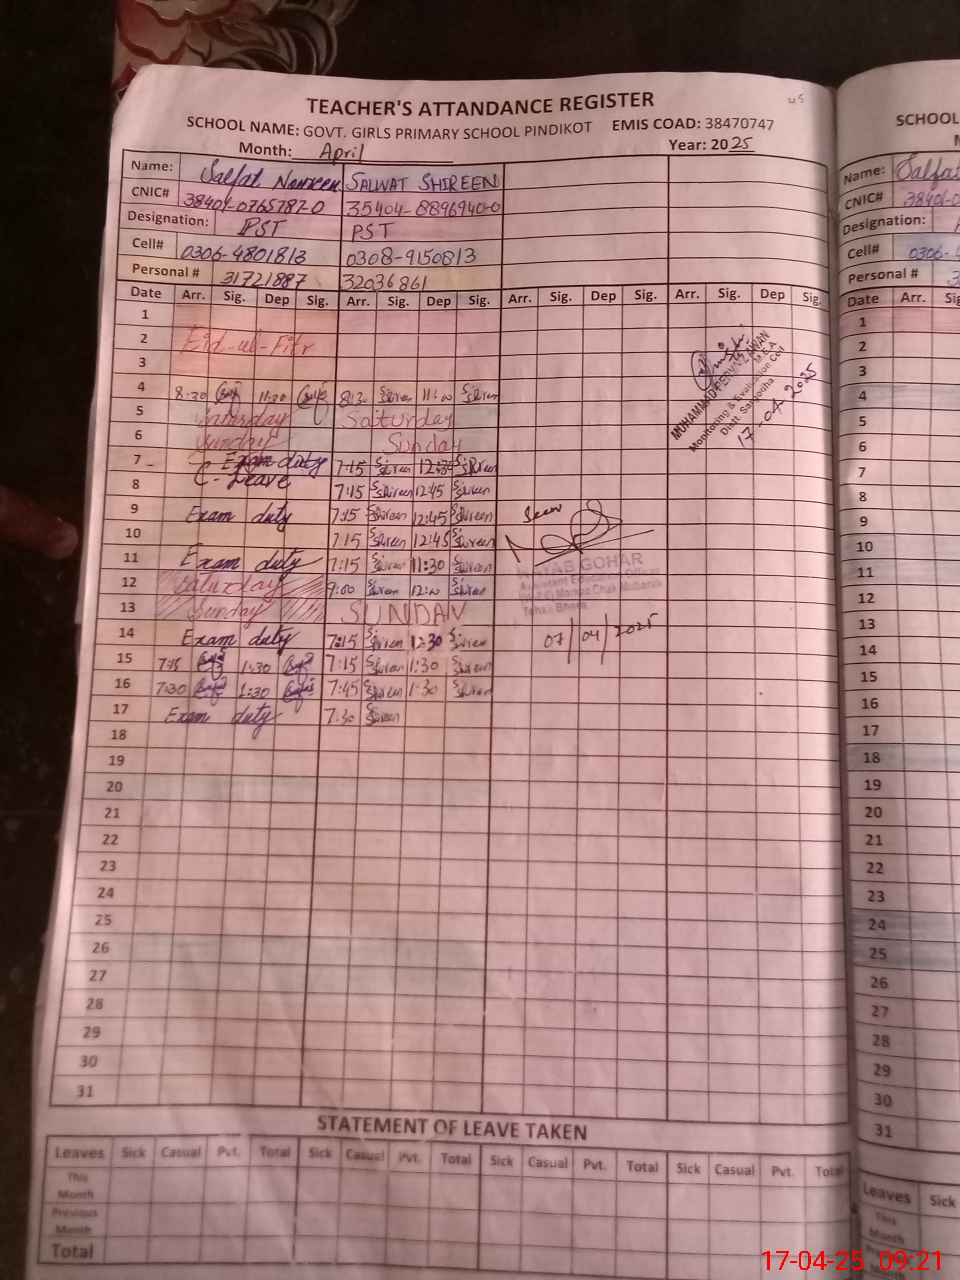 TEACHER'S ATTANDANCE REGISTER
SCHOOL NAME: GOVT. GIRLS PRIMARY SCHOOL PINDIKOT EMIS COAD: 38470747
Month: April Year: 2025
Name: Salfat Nawreen SALWAT SHIREEN
CNIC# 38401-0765787-0 35404-8896940-0
Designation: PST PST
Cell# 0306-4801813 0308-9150813
Personal # 31721887 32036861
Date Arr. Sig. Dep Sig. Arr. Sig. Dep Sig. Arr. Sig. Dep Sig. Arr. Sig. Dep Sig.
1
2 Eid-ul-Fitr
3
4 8:30 11:30 8:30 Shireen 11:30 Shireen
5 Saturday Saturday
6 Sunday Sunday
7 Exam duty 7:15 Shireen 12:30 Shireen
8 C-Leave 7:15 Shireen 12:45 Shireen
9 Exam duty 7:15 Shireen 12:45 Shireen
10 7:15 Shireen 12:45 Shireen
11 Exam duty 7:15 Shireen 11:30 Shireen
12 Saturday 9:00 Shireen 12:00 Shireen
13 Sunday SUNDAY
14 Exam duty 7:15 Shireen 12:30 Shireen
15 7:15 1:30 7:15 Shireen 1:30 Shireen
16 7:30 1:30 7:45 Shireen 1:30 Shireen
17 Exam duty 7:30 Shireen
18
19
20
21
22
23
24
25
26
27
28
29
30
31
MUHAMMAD PERVAIZ AWAN
M.E.A
Monitoring & Evaluation Cell
Distt. Sargodha
17-04-2025
Seen
NAYAB GOHAR
Assistant Education Officer
Tehsil Bhera
07/04/2025
STATEMENT OF LEAVE TAKEN
Leaves Sick Casual Pvt. Total Sick Casual Pvt. Total Sick Casual Pvt. Total Sick Casual Pvt. Total
This Month
Previous Month
Total
SCHOOL
Name: Salfat
CNIC# 38401-0
Designation:
Cell# 0306-4
Personal #
Date Arr.
1
2
3
4
5
6
7
8
9
10
11
12
13
14
15
16
17
18
19
20
21
22
23
24
25
26
27
28
29
30
31
Leaves Sick
This Month
Previous Month
Total
17-04-25 09:21